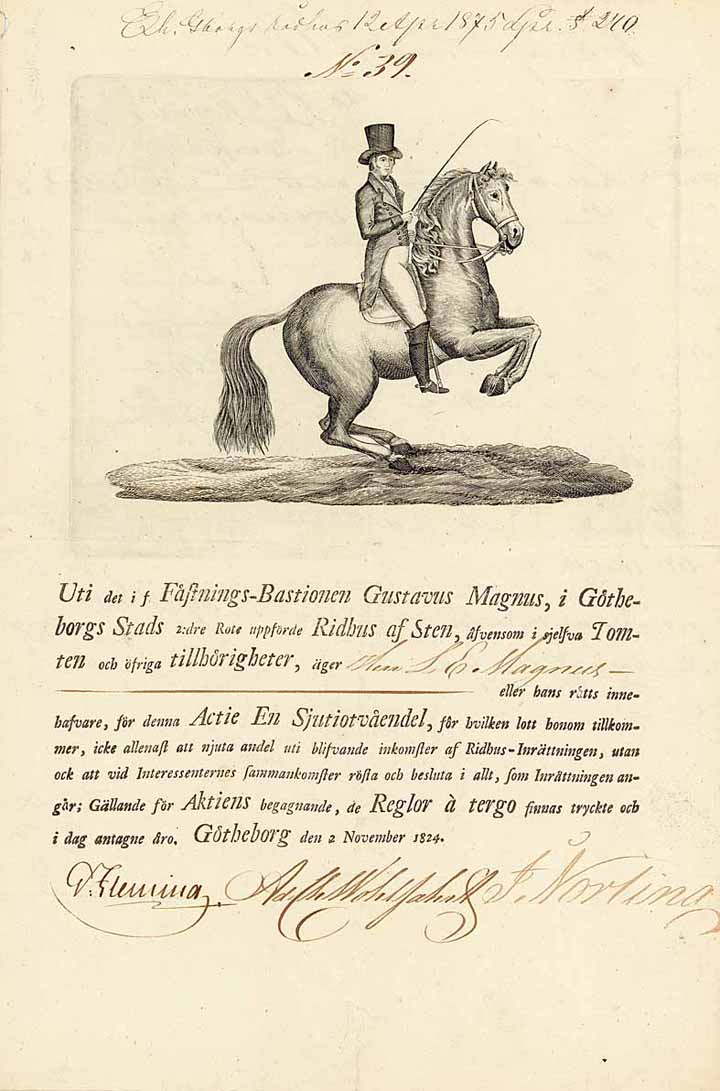 Gborgs Rådhus 12 Apr 1875 § 240.
No 39.
Uti det i f. Fäſtnings-Baſtionen Gustavus Magnus, i Göthe-
borgs Stads 2:dre Rote uppförde Ridhus af Sten, äfvensom i sjelfva Tom-
ten och öfriga tillhörigheter, äger Herr L E Magnus
eller hans rätts inne-
hafvare, för denna Actie En Sjutiotvåendel, för hvilken lott honom tillkom-
mer, icke allenaſt att njuta andel uti blifvande inkomſter af Ridhus-Inrättningen, utan
ock att vid Interessenternes ſammankomſter röſta och besluta i allt, ſom Inrättningen an-
går; Gällande för Aktiens begagnande, de Reglor à tergo finnas tryckte och
i dag antagne äro. Götheborg den 2 November 1824.
D. Fleming. J. Norling